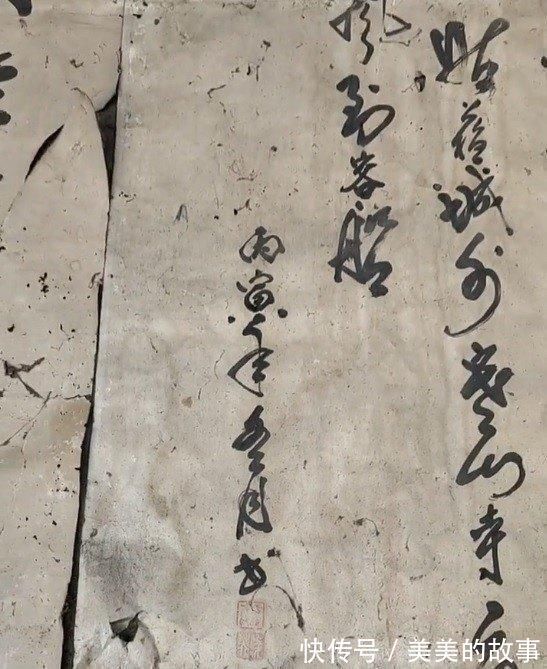 姑蘓城外寒山寺
到客船
丙寅年月书
快传号 / 美美的故事